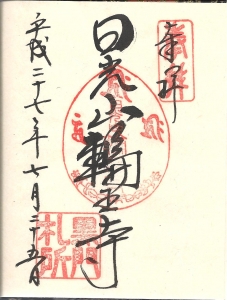 奉拝
日光山輪王寺
平成二十七年七月二十五日
黒門
札所